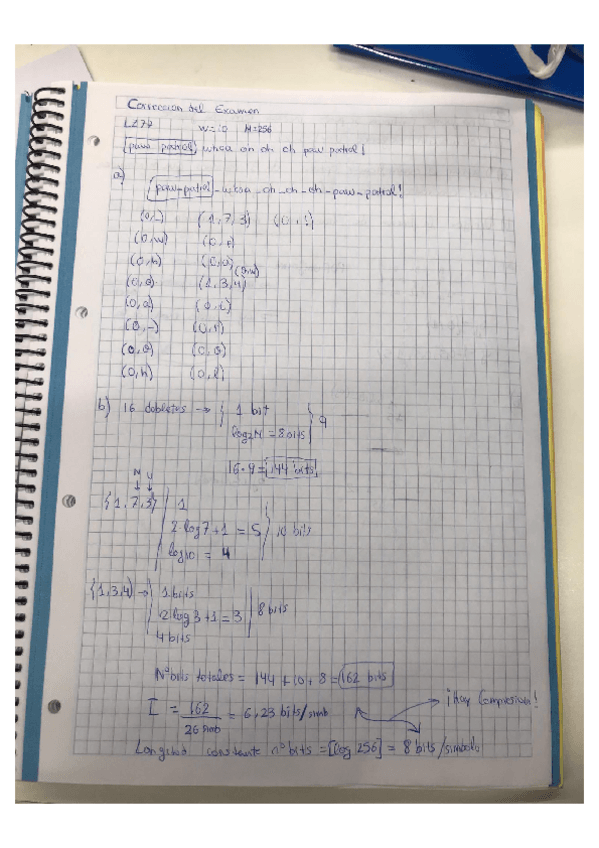 Correccion del Examen
LZ77 W=10 M=256
paw patrol whoa oh oh oh paw patrol!
a)
paw-patrol-whoa-oh-oh-oh-paw-patrol!
(0,-) (1,7,3) (0,!)
(0,w) (0,p)
(0,h) (0,a) (0,w)
(0,o) (1,3,4)
(0,a) (0,t)
(0,-) (0,r)
(0,o) (0,o)
(0,h) (0,l)
b) 16 dobletes → 1 bit
log₂M = 8 bits 9
16·9 = 144 bits
N U
(1,7,3) 1
2·log7+1 = 5 10 bits
log10 = 4
(1,3,4) → 1 bits
2log3+1=3 8 bits
4 bits
Nº bits totales = 144+10+8 = 162 bits
I = 162 / 26 simb = 6,23 bits/simb ¡Hay Compresion!
Longitud constante nº bits = [log 256] = 8 bits/simbolo